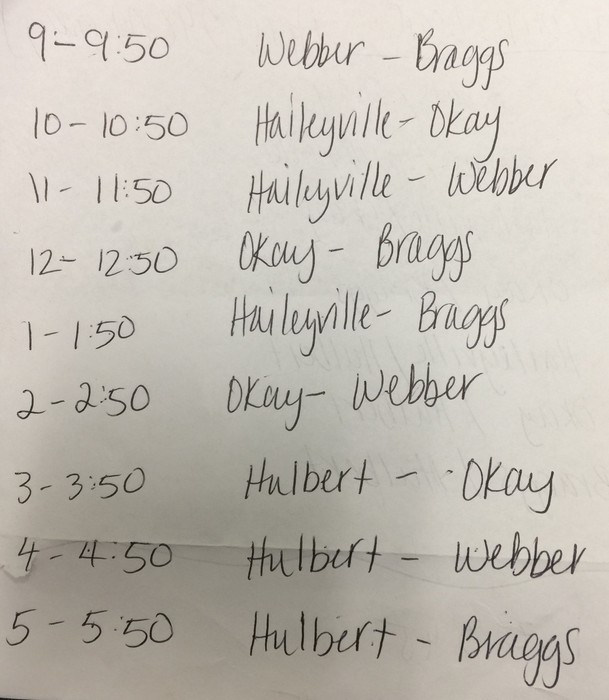 9-9:50 Webber - Braggs
10-10:50 Haileyville - Okay
11-11:50 Haileyville - Webber
12-12:50 Okay - Braggs
1-1:50 Haileyville - Braggs
2-2:50 Okay - Webber
3-3:50 Hulbert - Okay
4-4:50 Hulbert - Webber
5-5:50 Hulbert - Braggs